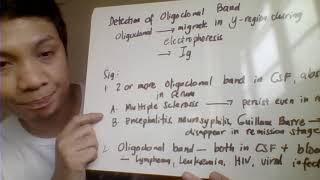 Detection of Oligoclonal Band
Oligoclonal → migrate in γ-region during
electrophoresis
→ Ig
Sig:
1. 2 or more Oligoclonal band in CSF, abs
in serum
A. Multiple Sclerosis → persist even in re
B. Encephalitis, neurosyphilis, Guillain Barre →
disappear in remission stage
2. Oligoclonal band — both in CSF + bloo
— Lymphoma, Leukemia, HIV, viral infec